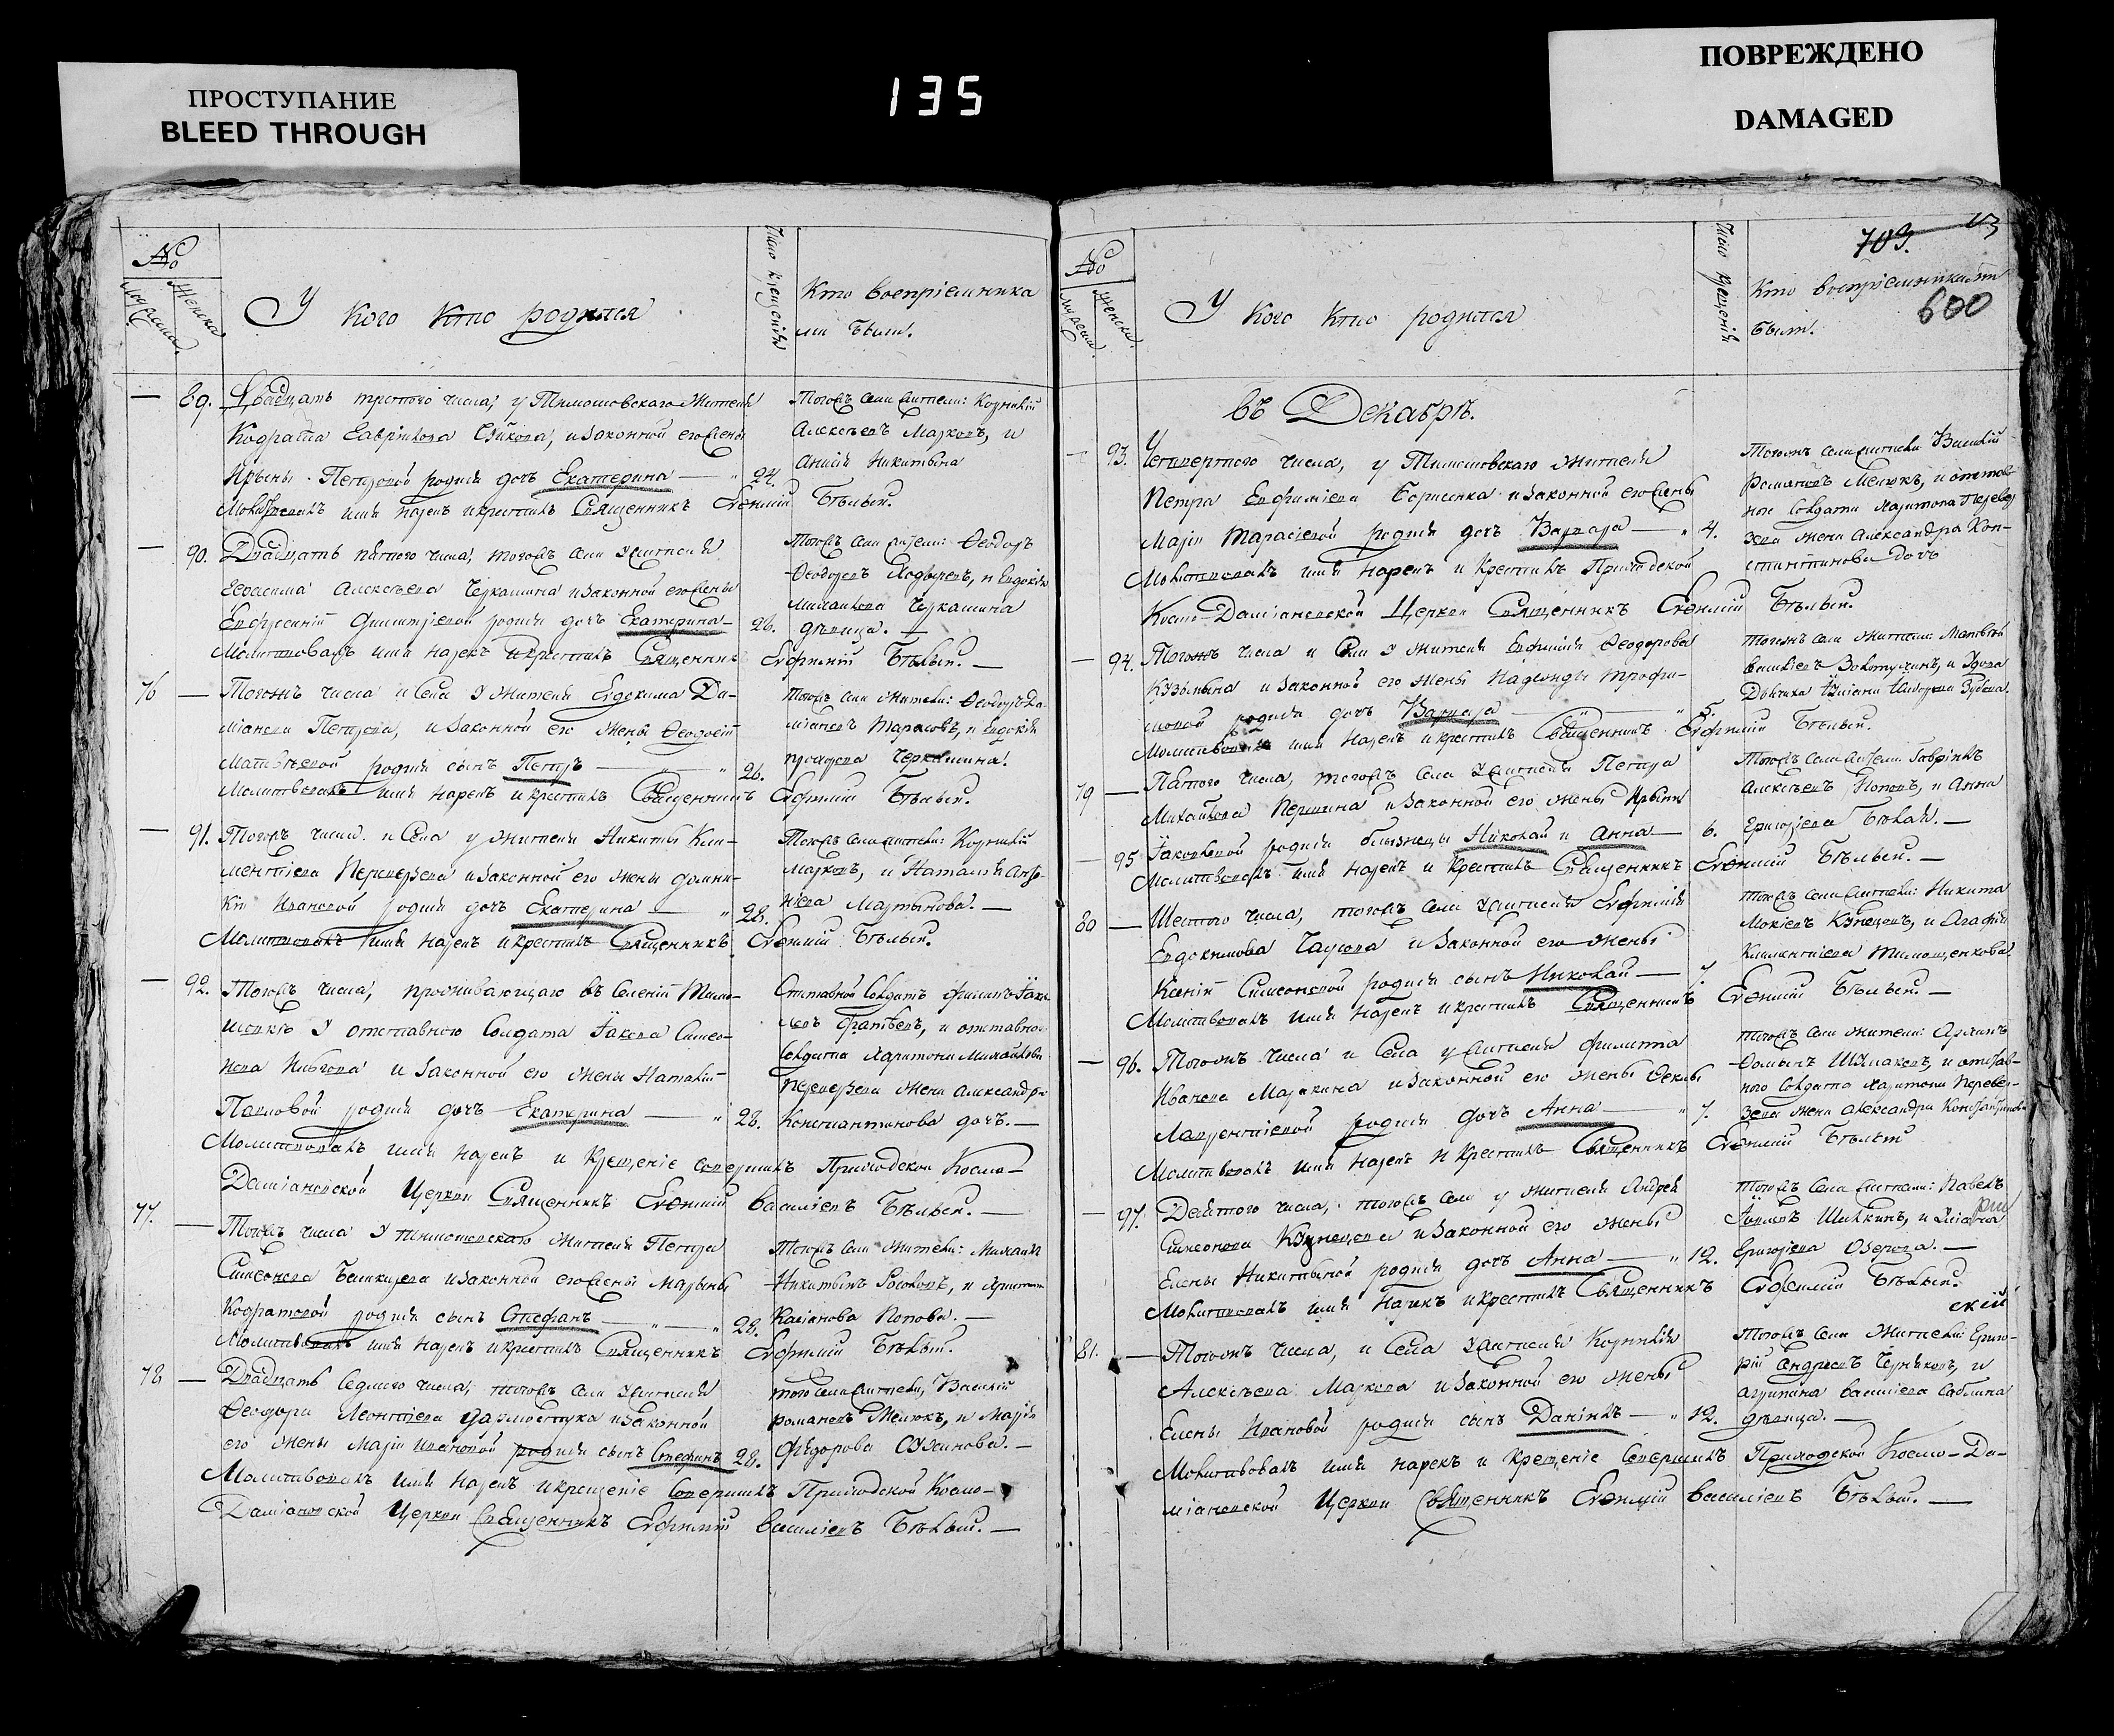 ПРОСТУПАНИЕ
BLEED THROUGH
135
ПОВРЕЖДЕНО
DAMAGED
№
Женска
У кого кто родился
Число крещенія
Кто воспріемника
ми былъ.
— 89. Двадцать третьяго числа, у Тимошовскаго Жителя
Кодрата Гавріилова, и законной его жены
Ирыны Петровой родися дочь Екатерина — " 24.
Молитвовалъ имя нарекъ и крестилъ Священникъ Евѳимій Бѣлый.
Тогожъ села жители: Корнилій
Алексѣевъ Марковъ, и
Анисія Никитина
— 90. Двадцать пятого числа, тогожъ села у жителя
Герасима Алексѣева Черкашина и законной его жены
Евфросиніи Димитріевой родися дочь Екатерина — 26.
Молитвовалъ имя нарекъ и крестилъ Священникъ Евфимій Бѣлый. —
Тогожъ села жители: Ѳеодоръ
Ѳеодоровъ, и Евдокія
Михаилова Черкашина
дѣвица. —
76 — Тогожъ числа и села у жителя Евдокима Да-
міанова Петрова, и законной его жены Ѳеодосіи
Матвѣевой родися сынъ Петръ — " 26.
Молитвовалъ имя нарекъ и крестилъ Священникъ Евфимій Бѣлый.
Тогожъ села жители: Ѳеодоръ Да-
міановъ Тарасовъ, и Евдокія
Черкашина.
— 91. Тогожъ числа и села у жителя Никиты Кли-
ментіева Перевѣрзева и законной его жены Домни-
кіи Ивановой родися дочь Екатерина — " 28.
Молитвовалъ имя нарекъ и крестилъ Священникъ Евѳимій Бѣлый.
Тогожъ села жители: Корнилій
Марковъ, и Наталія Андре-
Мартынова. —
— 92. Тогожъ числа, проживающаго въ селеніи Тимо-
шовкѣ у отставного солдата Іакова Симео-
нова и законной его жены Наталіи
Павловой родися дочь Екатерина — " 28.
Молитвовалъ имя нарекъ и крещеніе совершилъ Приходской Космо-
Даміановской Церкви Священникъ Евѳимій Василіевъ Бѣлый. —
Отставной солдатъ Филипъ Іако-
влевъ, и отставного
солдата Харитона Михайлова
Перевѣрзева жена Александра
Константинова дочь. —
77. — Тогожъ числа у Тимошовскаго жителя Петра
Симеонова Башкирева и законной его жены Марыны
Кодратовой родися сынъ Стефанъ — " — " 28.
Молитвовалъ имя нарекъ и крестилъ Священникъ Евфимій Бѣлый.
Тогожъ села жители: Михаилъ
Никитинъ, и Христина
Касіанова Попова. —
78 — Двадцать седмого числа, тогожъ села у жителя
Ѳеодора Леонтіева и законной
его жены Маріи Ивановой родися сынъ Стефанъ 28.
Молитвовалъ имя нарекъ и крещеніе совершилъ Приходской Космо-
Даміановской Церкви Священникъ Евфимій Василіевъ Бѣлый. —
того села жители, Василій
Романовъ Мелюкъ, и Марія
Ѳедорова. —
703.
600
№
Женска.
У кого кто родился
Число крещенія
Кто воспріемниками
былъ.
Въ Декабрѣ.
— 93. Четвертого числа, у Тимошовскаго жителя
Петра Евфиміева Борисенка и законной его жены
Маріи Тарасіевой родися дочь Варвара — " 4.
Молитвовалъ имя нарекъ и крестилъ Приходской
Космо-Даміановской Церкви Священникъ Евѳимій Бѣлый.
Тогожъ села жители Василій
Романовъ Мелюкъ, и отстав-
ного солдата Харитона Перевер-
зева жена Александра Кон-
стантинова дочь
— 94. Тогожъ числа и села у жителя Евфимія Ѳеодорова
Кузьмина и законной его жены Надежды Трофи-
мовой родися дочь Варвара — " 5.
Молитвовалъ имя нарекъ и крестилъ Священникъ Евфимій Бѣлый.
Тогожъ села жители: Матвѣй
Василіевъ, и вдова
Зубова.
79 — Пятого числа, тогожъ села у жителя Петра
Михайлова Першина и законной его жены Ирыны
— 95 Іаковлевой родися близнецы Николай и Анна — 6.
Молитвовалъ имя нарекъ и крестилъ Священникъ Евѳимій Бѣлый. —
Тогожъ села жители: Гавріилъ
Алексѣевъ Поповъ, и Анна
Григоріева Бѣлая. —
80 — Шестого числа, тогожъ села у жителя Евфимія
Евдокимова Чаусова и законной его жены
Ксеніи Симеоновой родися сынъ Николай — 7.
Молитвовалъ имя нарекъ и крестилъ Священникъ Евѳимій Бѣлый. —
Тогожъ села жители: Никита
Мокіевъ Кузнецовъ, и Агафія
Климентіева Тимощенкова.
— 96. Тогожъ числа и села у жителя Филипа
Иванова Маракина и законной его жены Ѳеклы
Лаврентіевой родися дочь Анна — " 7.
Молитвовалъ имя нарекъ и крестилъ Священникъ Евѳимій Бѣлый
Тогожъ села жители:
Ѳоминъ, и отстав-
ного солдата Харитона Перевер-
зева жена Александра Константинова
— 97. Девятого числа, тогожъ села у жителя Андрея
Симеонова Кузнецова и законной его жены
Елены Никитиной родися дочь Анна — " 12.
Молитвовалъ имя нарекъ и крестилъ Священникъ Евфимій Бѣлый.
Тогожъ села жители: Павелъ
Шилкинъ, и
Григоріева Озерова. —
скій
81. — Тогожъ числа, и села у жителя Корнилія
Алексѣева Маркова и законной его жены
Елены Ивановой родися сынъ Даніилъ — " 12.
Молитвовалъ имя нарекъ и крещеніе совершилъ Приходской Космо-Да-
міановской Церкви Священникъ Евѳимій Василіевъ Бѣлый. —
Тогожъ села жители: Григо-
рій Андреевъ Черняковъ, и
Агрипина Василіева Саблина
дѣвица. —